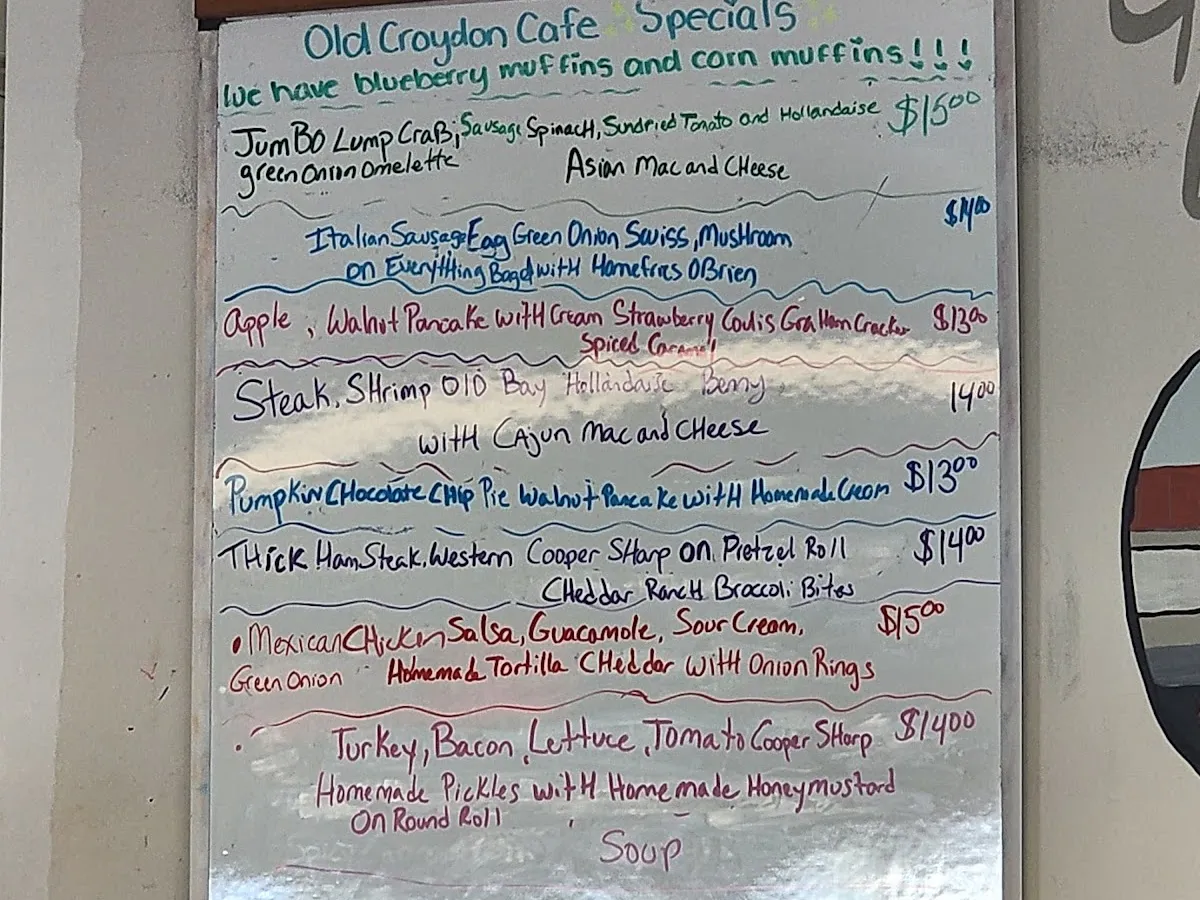 Old Croydon Cafe Specials
We have blueberry muffins and corn muffins!!!
JumBO Lump CraB, Sausage Spinach, Sundried Tomato and Hollandaise $15.00
green Onion Omelette Asian Mac and CHeese
$14.00
Italian Sausage Egg Green Onion Swiss, MusHroom
on EverytHing Bagel witH Homefries OBrien
Apple, Walnut Pancake witH Cream Strawberry Coulis GraHam Cracker $13.00
Spiced Caramel
Steak, SHrimp Old Bay Hollandaise Benny 14.00
witH CAjun Mac and CHeese
Pumpkin CHocolate CHip Pie Walnut Pancake witH Homemade Cream $13.00
THick Ham Steak, Western Cooper SHarp on Pretzel Roll $14.00
CHeddar RancH Broccoli Bites
• Mexican CHicken Salsa, Guacamole, Sour Cream, $15.00
Green Onion Homemade Tortilla CHeddar witH Onion Rings
• Turkey, Bacon, Lettuce, Tomato Cooper SHarp $14.00
Homemade Pickles witH Homemade Honeymustard
On Round Roll
Soup